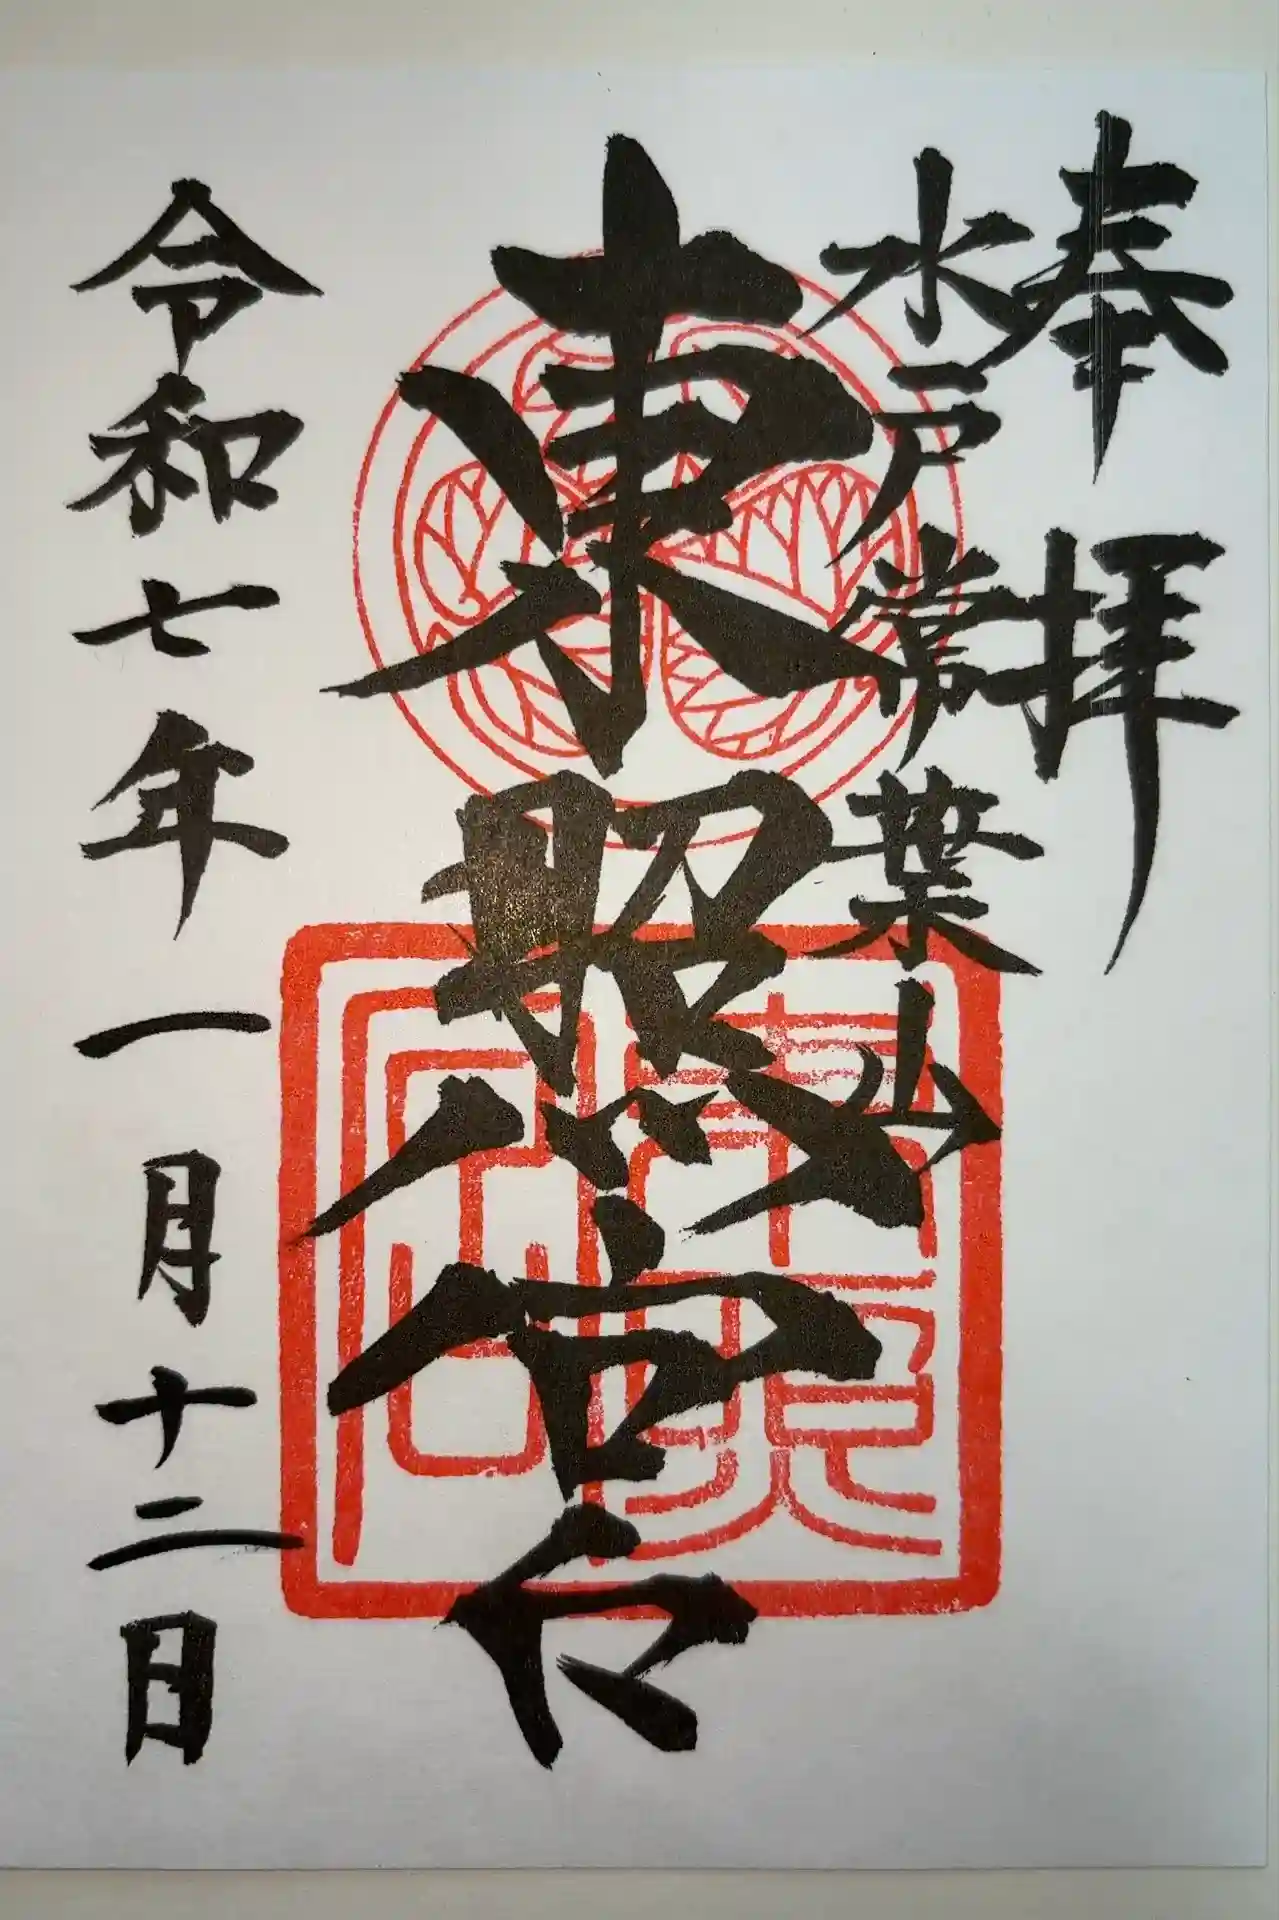 奉拝
水戸常葉山
東照宮
令和七年一月十二日